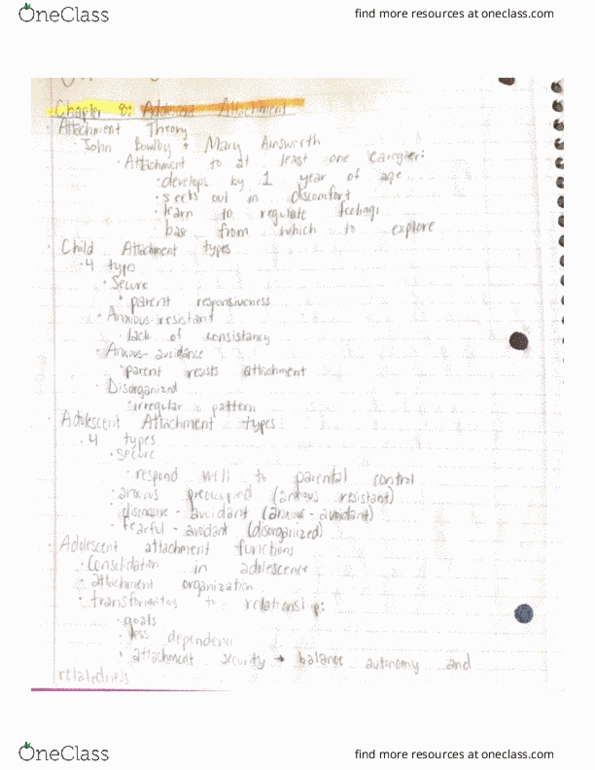 OneClass
find more resources at oneclass.com
Chapter 8: Attachment
Attachment Theory
John Bowlby + Mary Ainsworth
Attachment to at least one caregier:
develops by 1 year of age
seeks out in discomfort
learn to regulate feelings
base from which to explore
Child Attachment types
4 types
Secure
parent responsiveness
Anxious-resistant
lack of consistancy
Anxious-avoidance
parent resists attachment
Disorganized
irregular pattern
Adolescent Attachment types:
4 types
Secure
respond well to parental control
anxious preocupied (anxious resistant)
dismissive-avoidant (anxious-avoidant)
fearful-avoidant (disorganized)
Adolescent attachment functions
Consolidation in adolescence
attachment organization
to relationship:
goals
less dependence
attachment security → balance autonomy and
relatedness
OneClass
find more resources at oneclass.com